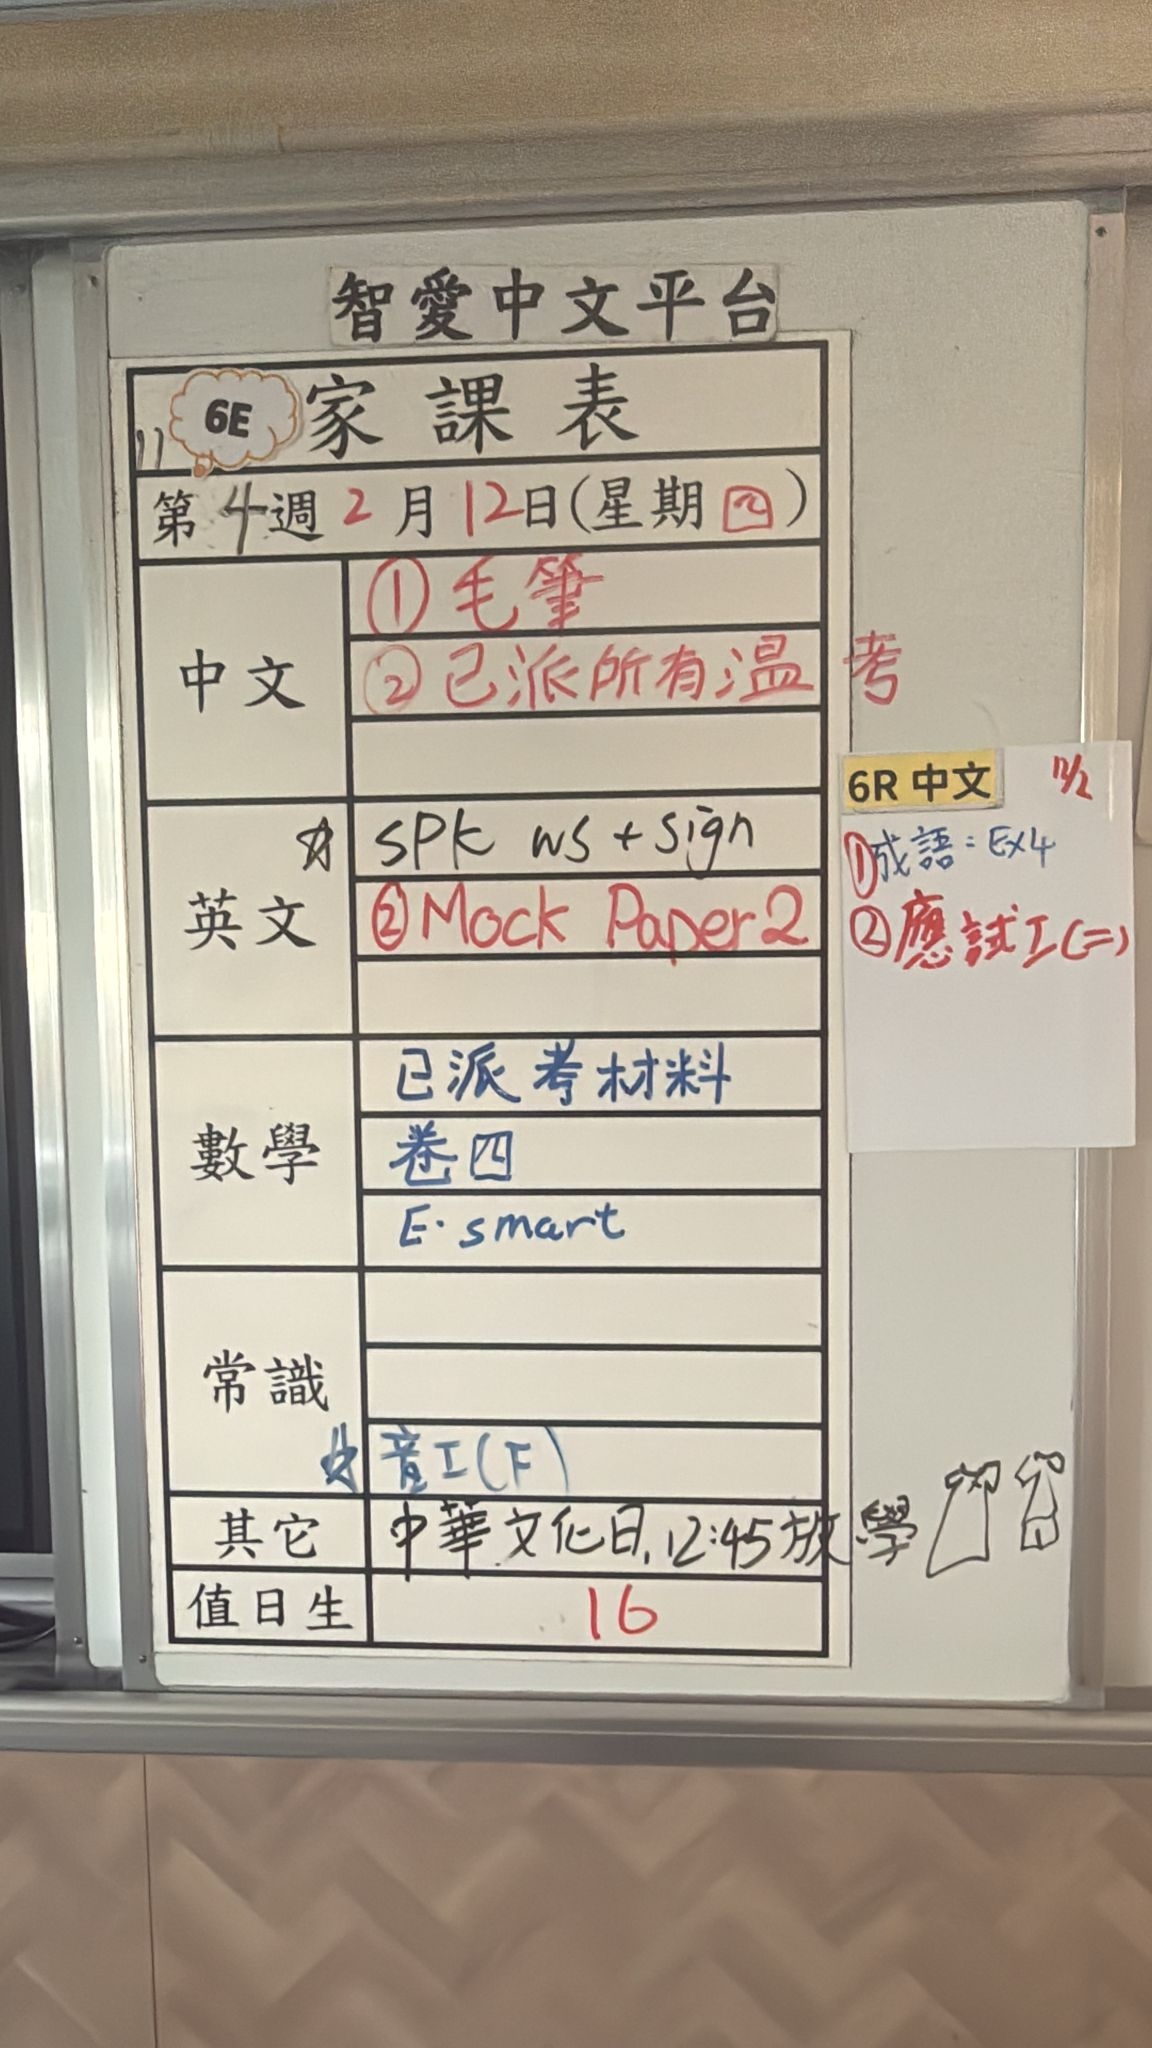 智愛中文平台
6E 家課表
第4週2月12日(星期四)
中文
①毛筆
②已派所有温考
英文
☆ SPK WS + sign
②Mock Paper 2
數學
已派考材料
卷四
E·smart
常識
☆ 音工(F)
其它
中華文化日,12:45放學
值日生
16
6R 中文 12/2
①成語:EX4
②應試工(二)